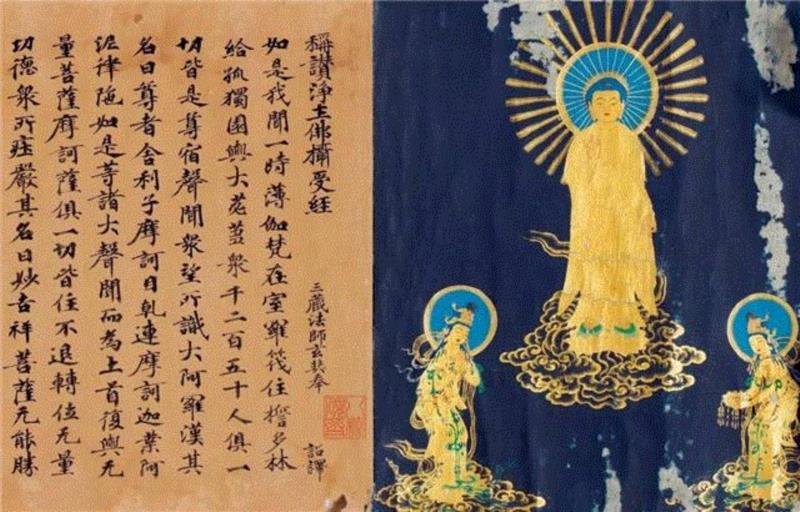 稱讚淨土佛攝受經
三藏法師玄奘奉 詔譯
如是我聞一時薄伽梵在室羅筏住誓多林
給孤獨園與大苾蒭衆千二百五十人俱一
切皆是尊宿聲聞衆望所識大阿羅漢其
名曰尊者舍利子摩訶目乾連摩訶迦葉阿
泥律陁如是等諸大聲聞而為上首復與无
量菩薩摩訶薩俱一切皆住不退轉位无量
功德衆所莊嚴其名曰妙吉祥菩薩无能勝